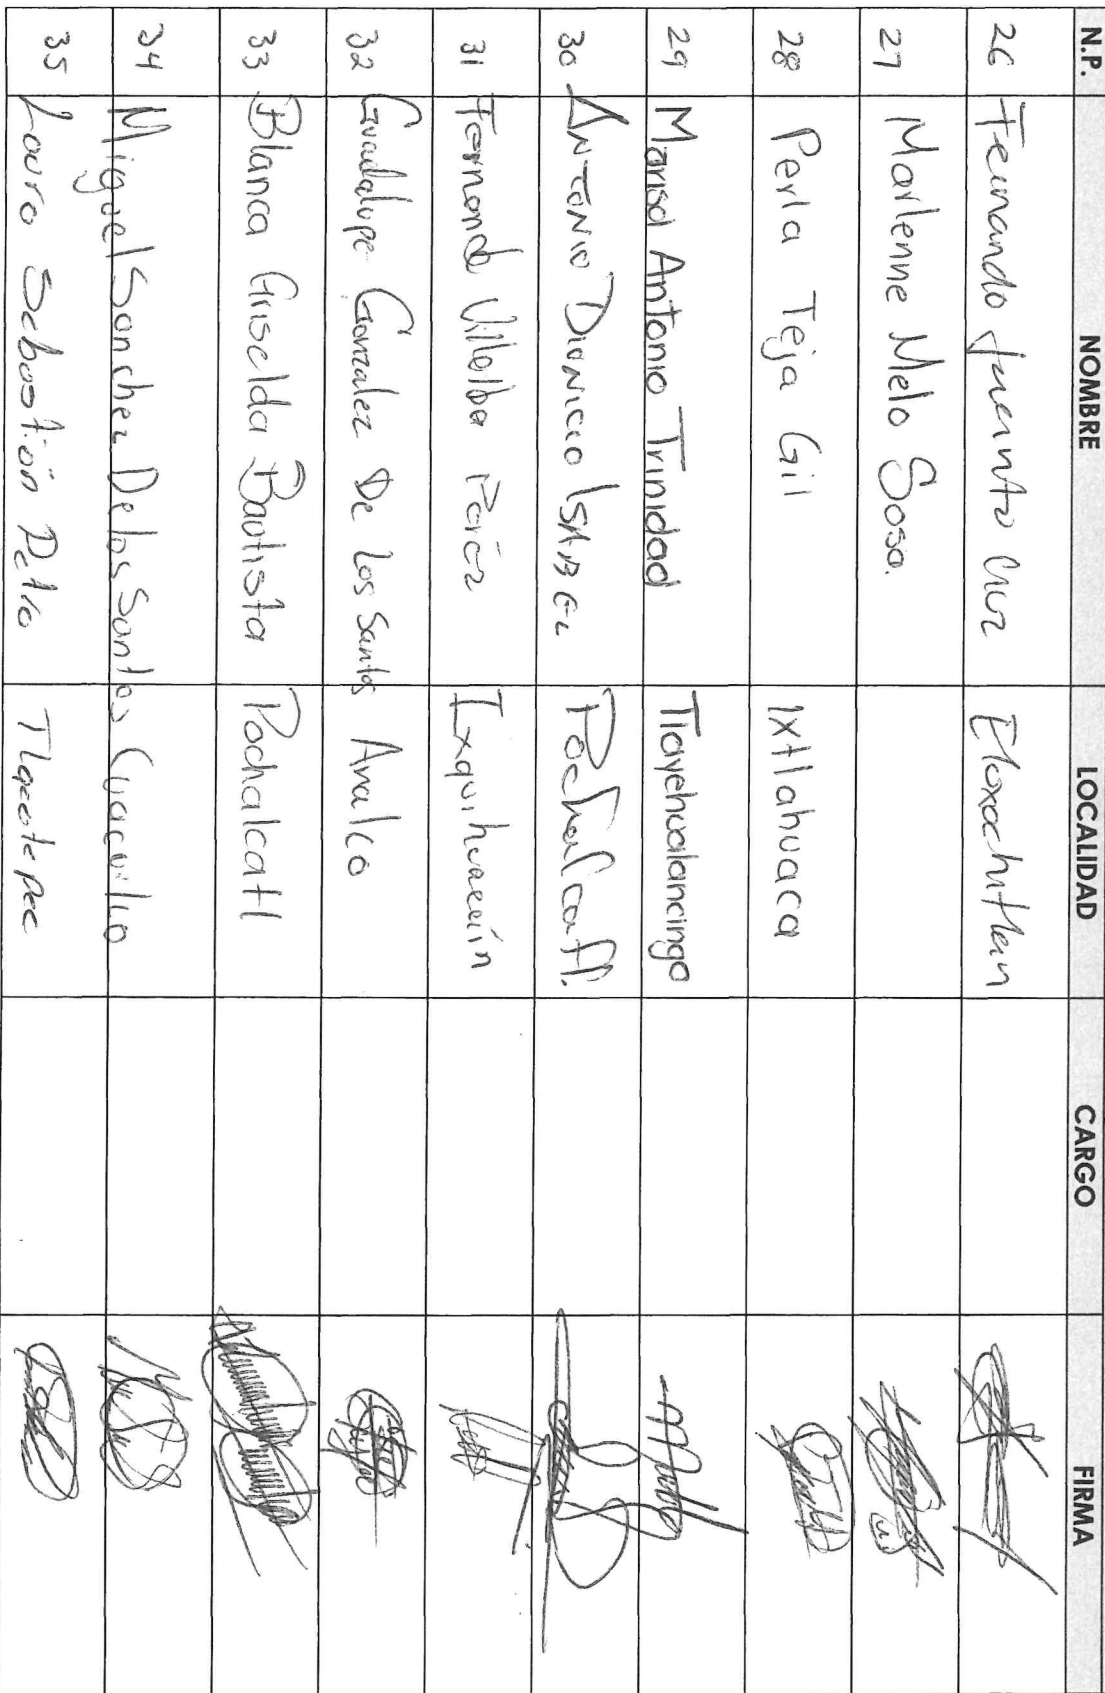 N.P. NOMBRE LOCALIDAD CARGO FIRMA
26 Fernando Jacinto Cruz Eloxochitlan
27 Marlenne Melo Sosa.
28 Perla Teja Gil Ixtlahuaca
29 Marisol Antonio Trinidad Tlayehualancingo
30 Antonio Dionicio Isabel Pochalcatl.
31 Fernando Villalba Pérez Ixquihuacán
32 Guadalupe Gonzalez De Los Santos Analco
33 Blanca Griselda Bautista Pochalcatl
34 Miguel Sanchez De los Santos Cuacuilco
35 Lauro Sebastián Pedro Tlacotepec